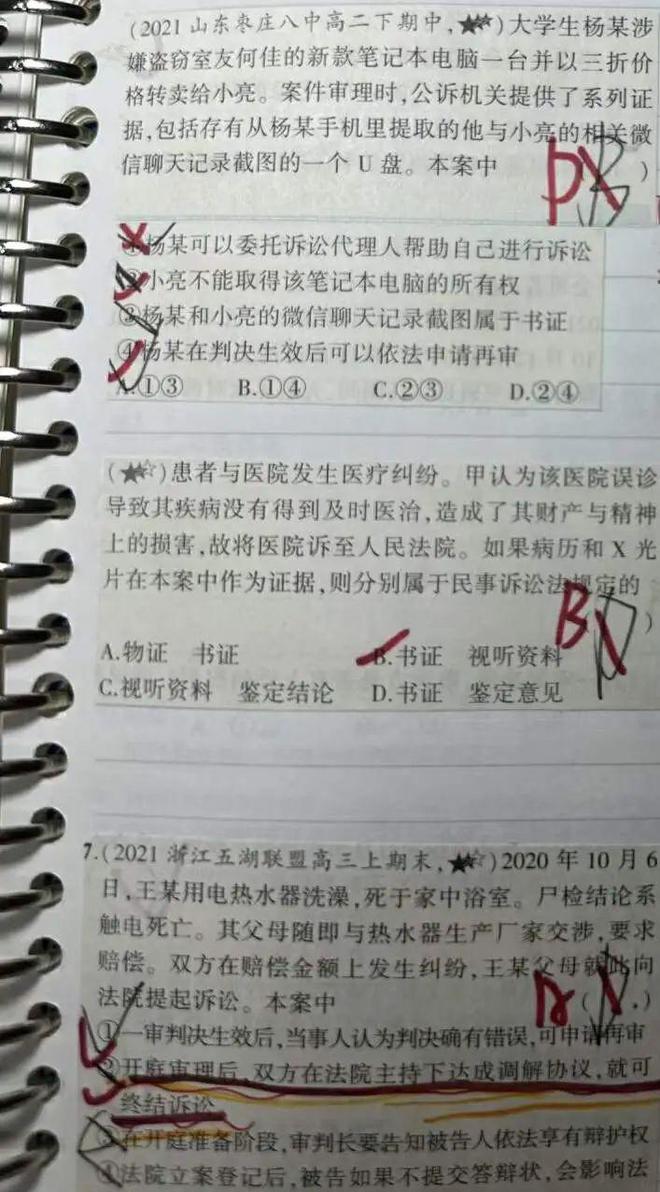 (2021 山东枣庄八中高二下期中,★☆)大学生杨某涉
嫌盗窃室友何佳的新款笔记本电脑一台并以三折价
格转卖给小亮。案件审理时,公诉机关提供了系列证
据,包括存有从杨某手机里提取的他与小亮的相关微
信聊天记录截图的一个 U 盘。本案中 ( )
D B
①杨某可以委托诉讼代理人帮助自己进行诉讼
②小亮不能取得该笔记本电脑的所有权
③杨某和小亮的微信聊天记录截图属于书证
④杨某在判决生效后可以依法申请再审
A.①③ B.①④ C.②③ D.②④
(★☆)患者与医院发生医疗纠纷。甲认为该医院误诊
导致其疾病没有得到及时医治,造成了其财产与精神
上的损害,故将医院诉至人民法院。如果病历和 X 光
片在本案中作为证据,则分别属于民事诉讼法规定的
( )
B D
A.物证 书证 B.书证 视听资料
C.视听资料 鉴定结论 D.书证 鉴定意见
7.(2021 浙江五湖联盟高三上期末,★☆)2020 年 10 月 6
日,王某用电热水器洗澡,死于家中浴室。尸检结论系
触电死亡。其父母随即与热水器生产厂家交涉,要求
赔偿。双方在赔偿金额上发生纠纷,王某父母就此向
法院提起诉讼。本案中 ( )
①一审判决生效后,当事人认为判决确有错误,可申请再审
②开庭审理后,双方在法院主持下达成调解协议,就可
终结诉讼
③在开庭准备阶段,审判长要告知被告人依法享有辩护权
④法院立案登记后,被告如果不提交答辩状,会影响法